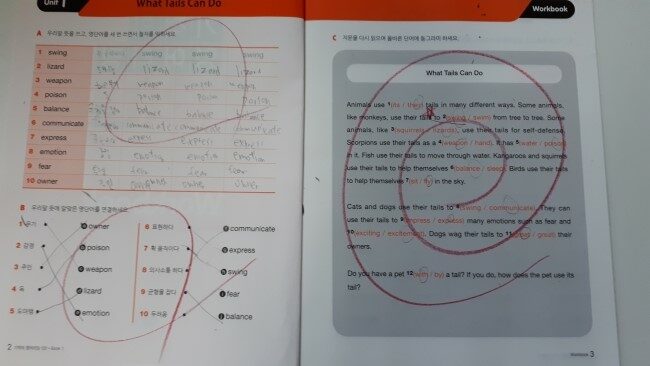 Unit 1
What Tails Can Do
Workbook
A 우리말 뜻을 쓰고, 영단어를 세 번 쓰면서 철자를 익히세요.
1 swing swing swing swing
2 lizard lizard lizard lizard
3 weapon weapon weapon
4 poison poison poison
5 balance balance balance balance
6 communicate communicate communicate communicate
7 express express express express
8 emotion emotion emotion
9 fear fear fear fear
10 owner owner owner
B 우리말 뜻에 알맞은 영단어를 연결하세요.
1 무기 ⓐ owner
2 감정 ⓑ poison
3 주인 ⓒ weapon
4 독 ⓓ lizard
5 도마뱀 ⓔ emotion
6 표현하다 ⓕ communicate
7 휙 움직이다 ⓖ express
8 의사소통 하다 ⓗ swing
9 균형을 잡다 ⓘ fear
10 두려움 ⓙ balance
2
C 지문을 다시 읽으며 올바른 단어에 동그라미 하세요.
What Tails Can Do
Animals use 1(its / their) tails in many different ways. Some animals,
like monkeys, use their tails to 2(swing / swim) from tree to tree. Some
animals, like 3(squirrels / lizards), use their tails for self-defense.
Scorpions use their tails as a 4(weapon / hand). It has 5(water / poison)
in it. Fish use their tails to move through water. Kangaroos and squirrels
use their tails to help themselves 6(balance / sleep). Birds use their tails
to help themselves 7(sit / fly) in the sky.
Cats and dogs use their tails to 8(swing / communicate). They can
use their tails to 9(impress / express) many emotions such as fear and
10(exciting / excitement). Dogs wag their tails to 11( / ) their
owners.
Do you have a pet 12(with / by) a tail? If you do, how does the pet use its
tail?
Workbook 3